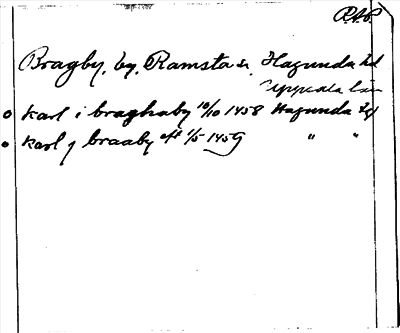 R.A.P.
Bragby, by, Ramsta sn, Hagunda hd
Uppsala län
o karl i braghaby 10/10 1458 Hagunda hd
o karl j braaby oft 1/5 1459 " "